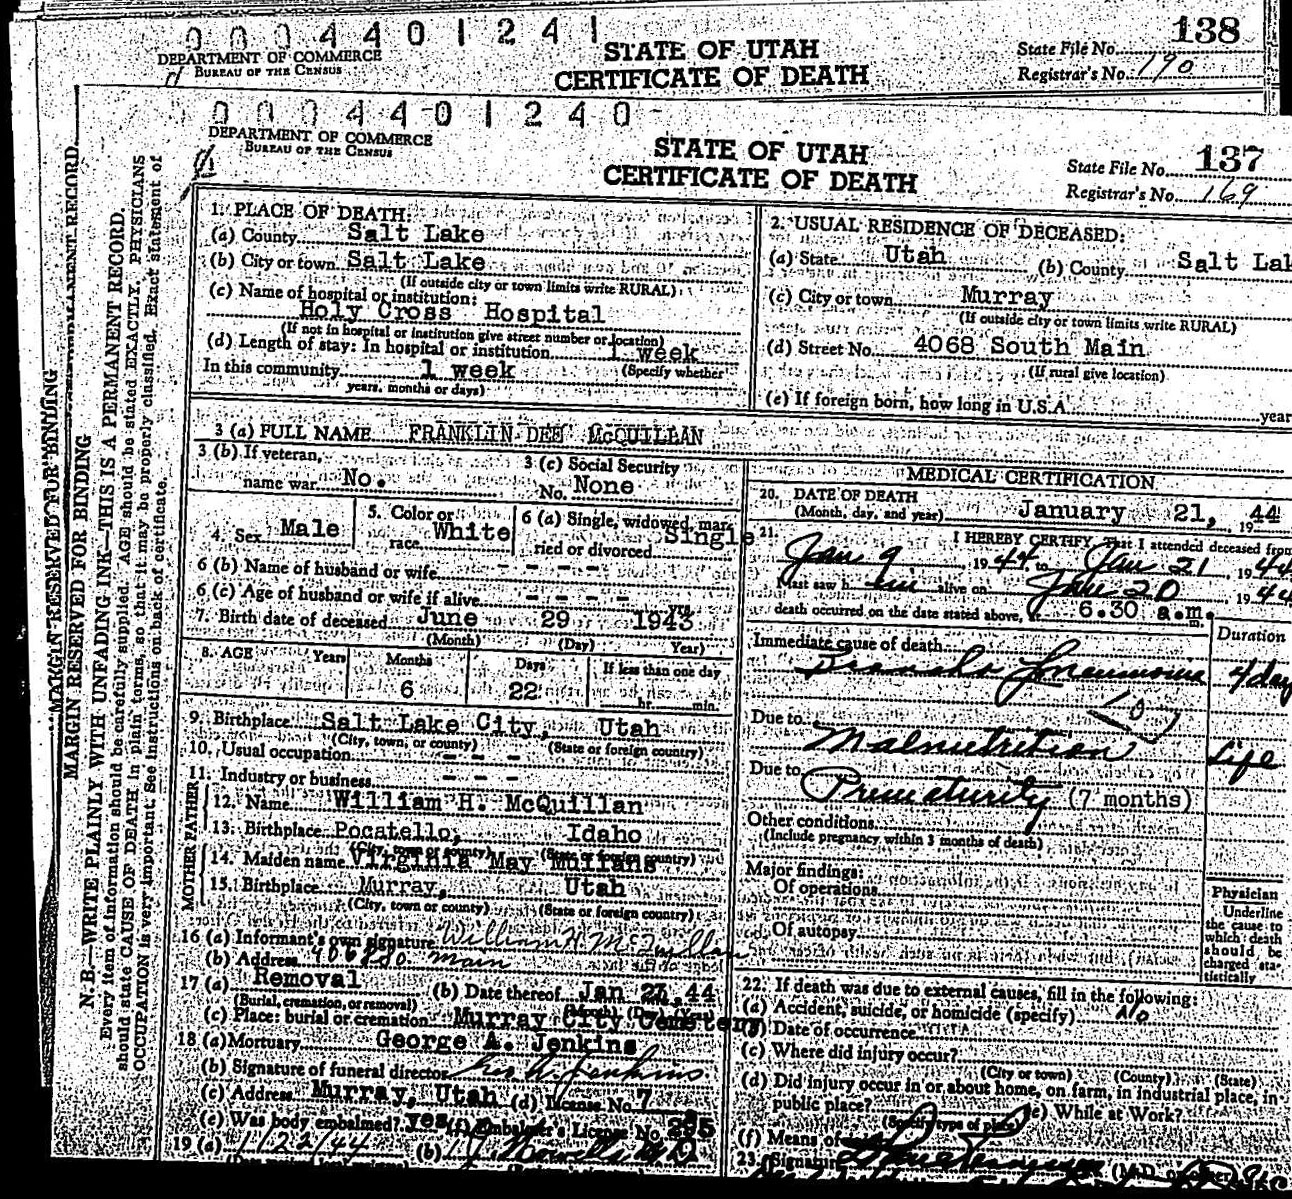 0004401241
DEPARTMENT OF COMMERCE
BUREAU OF THE CENSUS
STATE OF UTAH
CERTIFICATE OF DEATH
State File No. 138
Registrar's No. 190
0004401240
DEPARTMENT OF COMMERCE
BUREAU OF THE CENSUS
STATE OF UTAH
CERTIFICATE OF DEATH
State File No. 137
Registrar's No. 169
MARGIN RESERVED FOR BINDING
MARGIN RESERVED FOR BINDING
N. B.—WRITE PLAINLY WITH UNFADING INK—THIS IS A PERMANENT RECORD.
Every item of information should be carefully supplied. AGE should be stated EXACTLY, PHYSICIANS
should state CAUSE OF DEATH in plain terms, so that it may be properly classified. Exact statement of
OCCUPATION is very important. See instructions on back of certificate.
1. PLACE OF DEATH:
(a) County Salt Lake
(b) City or town Salt Lake
(If outside city or town limits write RURAL)
(c) Name of hospital or institution:
Holy Cross Hospital
(If not in hospital or institution give street number or location)
(d) Length of stay: In hospital or institution 1 week
In this community 1 week (Specify whether
years, months or days)
2. USUAL RESIDENCE OF DECEASED:
(a) State Utah (b) County Salt Lak
(c) City or town Murray
(If outside city or town limits write RURAL)
(d) Street No. 4068 South Main
(If rural give location)
(e) If foreign born, how long in U.S.A. year
3 (a) FULL NAME FRANKLIN DEE McQUILLAN
3 (b) If veteran,
name war No.
3 (c) Social Security
No. None
4. Sex Male
5. Color or
race White
6 (a) Single, widowed, mar
ried or divorced Single
6 (b) Name of husband or wife - - - -
6 (c) Age of husband or wife if alive - - - - yrs.
7. Birth date of deceased June 29 1943
(Month) (Day) Year)
8. AGE Years Months Days If less than one day
6 22 hr. min.
9. Birthplace Salt Lake City, Utah
(City, town, or county) (State or foreign country)
10. Usual occupation - - -
11. Industry or business - - -
FATHER
12. Name William H. McQuillan
13. Birthplace Pocatello, Idaho
(City, town or county) (State or foreign country)
MOTHER
14. Maiden name Virginia May Mullans
15. Birthplace Murray, Utah
(City, town or county) (State or foreign country)
16 (a) Informant's own signature William H McQuillan
(b) Address 4068 So. Main
17 (a) Removal (b) Date thereof Jan 44
(Burial, cremation, or removal) (Month) (Day) (Year)
(c) Place: burial or cremation Murray City Cemetery
18 (a) Mortuary George A. Jenkins
(b) Signature of funeral director Geo A. Jenkins
(c) Address Murray, Utah (d) License No. 7
(e) Was body embalmed? yes (f) Embalmer's License No.
19 (a) 1/22/44 (b)
MEDICAL CERTIFICATION
20. DATE OF DEATH
(Month, day, and year) January 21, 1944
21. I HEREBY CERTIFY, That I attended deceased from
Jan 9, 1944 to Jan 21 1944
last saw him alive on Jan 20 1944
death occurred on the date stated above, at 6.30 a.m.
m.
Duration
Immediate cause of death
Broncho Pneumonia 4 day
107
Due to
Malnutrition Life
Due to
Prematurity (7 months)
Other conditions
(Include pregnancy within 3 months of death)
Major findings:
Of operations
Of autopsy
Physician
Underline
the cause to
which death
should be
charged sta-
tistically
22. If death was due to external causes, fill in the following:
(a) Accident, suicide, or homicide (specify) No
(b) Date of occurrence
(c) Where did injury occur?
(City or town) (County) (State)
(d) Did injury occur in or about home, on farm, in industrial place, in
public place? (e) While at Work?
(Specify type of place)
(f) Means of
23. Signature (M.D. or other)